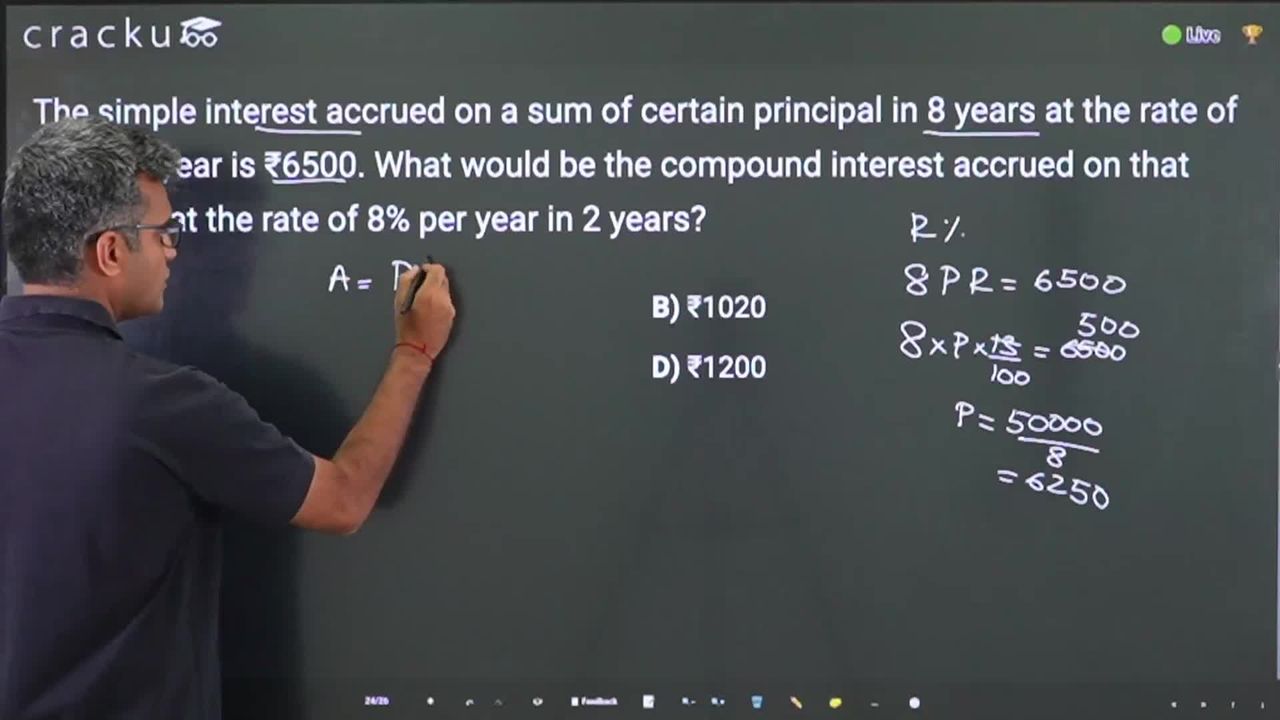 cracku
Live
The simple interest accrued on a sum of certain principal in 8 years at the rate of
ear is ₹6500. What would be the compound interest accrued on that
at the rate of 8% per year in 2 years?
R%
A =
B) ₹1020
D) ₹1200
8PR = 6500
500
8×P×13/100 = 6500
P = 50000/8
= 6250
24/26
Feedback